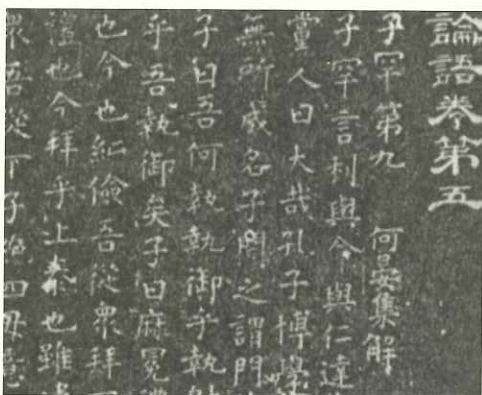 論語卷第五
子罕第九 何晏集解
子罕言利與命與仁達
黨人曰大哉孔子博學
無所成名子聞之謂門
子曰吾何執執御乎執射
乎吾執御矣子曰麻冕禮
也今也純儉吾從衆拜下
禮也今拜乎上泰也雖
衆吾從下子絶四毋意